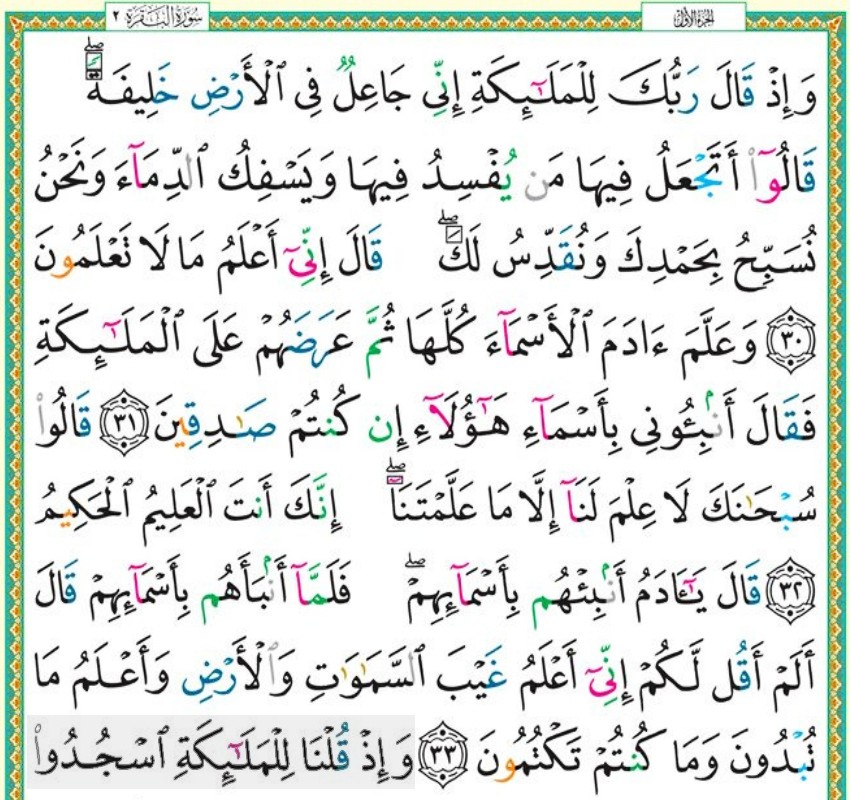 الجزء الأول
سورة البقرة ٢
وَإِذْ قَالَ رَبُّكَ لِلْمَلَـٰٓئِكَةِ إِنِّى جَاعِلٌ فِى ٱلْأَرْضِ خَلِيفَةًۖ
قَالُوٓا۟ أَتَجْعَلُ فِيهَا مَن يُفْسِدُ فِيهَا وَيَسْفِكُ ٱلدِّمَآءَ وَنَحْنُ
نُسَبِّحُ بِحَمْدِكَ وَنُقَدِّسُ لَكَۖ قَالَ إِنِّىٓ أَعْلَمُ مَا لَا تَعْلَمُونَ
٣٠ وَعَلَّمَ ءَادَمَ ٱلْأَسْمَآءَ كُلَّهَا ثُمَّ عَرَضَهُمْ عَلَى ٱلْمَلَـٰٓئِكَةِ
فَقَالَ أَنۢبِـُٔونِى بِأَسْمَآءِ هَـٰٓؤُلَآءِ إِن كُنتُمْ صَـٰدِقِينَ ٣١ قَالُوا۟
سُبْحَـٰنَكَ لَا عِلْمَ لَنَآ إِلَّا مَا عَلَّمْتَنَآۖ إِنَّكَ أَنتَ ٱلْعَلِيمُ ٱلْحَكِيمُ
٣٢ قَالَ يَـٰٓـَٔادَمُ أَنۢبِئْهُم بِأَسْمَآئِهِمْۖ فَلَمَّآ أَنۢبَأَهُم بِأَسْمَآئِهِمْ قَالَ
أَلَمْ أَقُل لَّكُمْ إِنِّىٓ أَعْلَمُ غَيْبَ ٱلسَّمَـٰوَٰتِ وَٱلْأَرْضِ وَأَعْلَمُ مَا
تُبْدُونَ وَمَا كُنتُمْ تَكْتُمُونَ ٣٣ وَإِذْ قُلْنَا لِلْمَلَـٰٓئِكَةِ ٱسْجُدُوا۟